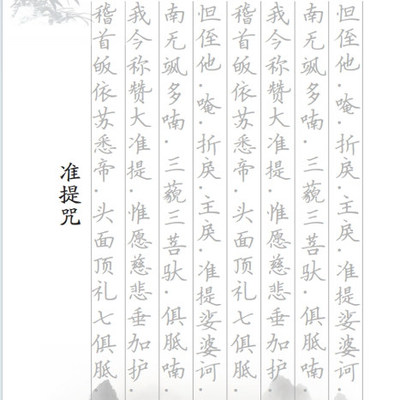 准提咒
稽首皈依苏悉帝·头面顶礼七俱胝·
我今称赞大准提·惟愿慈悲垂加护·
南无飒多喃·三藐三菩驮·俱胝喃·
怛侄他·唵·折戾·主戾·准提娑婆诃·
稽首皈依苏悉帝·头面顶礼七俱胝·
我今称赞大准提·惟愿慈悲垂加护·
南无飒多喃·三藐三菩驮·俱胝喃·
怛侄他·唵·折戾·主戾·准提娑婆诃·